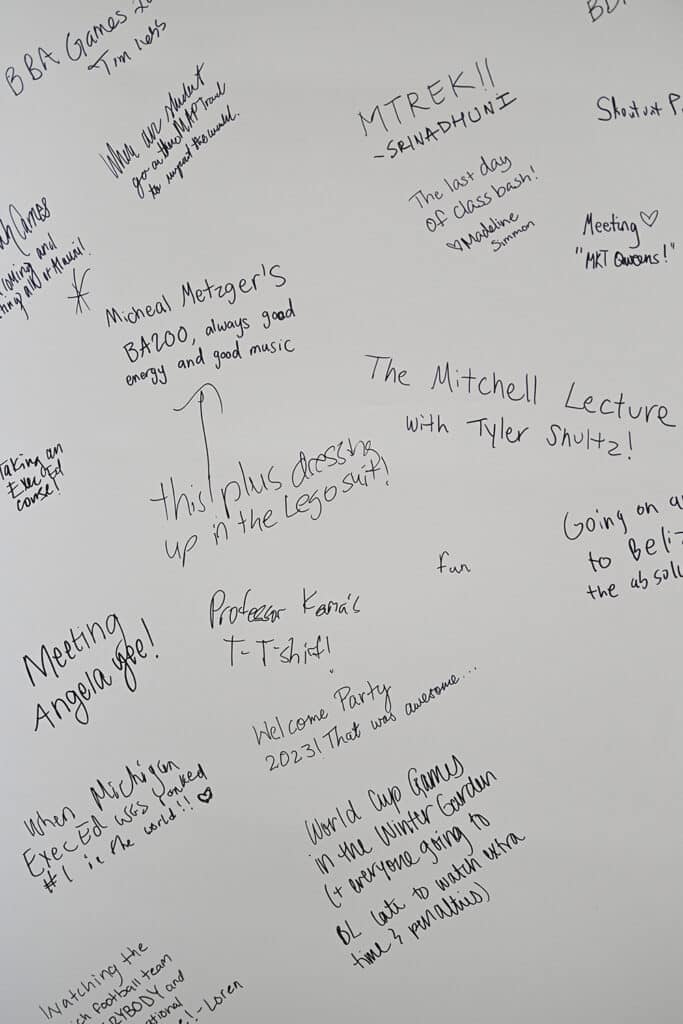 BBA Games
Tim
When are student
go on the MAP Travel
to impact the world.
MTREK!!
-SRINADHUNI
Shoutout P
The last day
of class bash!
♡Madeline
Simmon
Meeting ♡
"MKT Queens!"
Games
and
Micheal Metzger's
BA200, always good
energy and good music
this plus dressing
up in the Lego suit!
The Mitchell Lecture
with Tyler Shultz!
Taking an
Exec Ed
course!
Going on a
to Beli
the absolu
fun
Professor Kama's
T-T-shirt!
Meeting
Angela yee!
Welcome Party
2023! That was awesome...
When Michigan
Exec Ed was ranked
#1 in the world!! ♡
World Cup Games
in the Winter Garden
(+ everyone going to
BL late to watch extra
time & penalties)
Watching the
ich football team
RYBODY and
tional
!-Loren